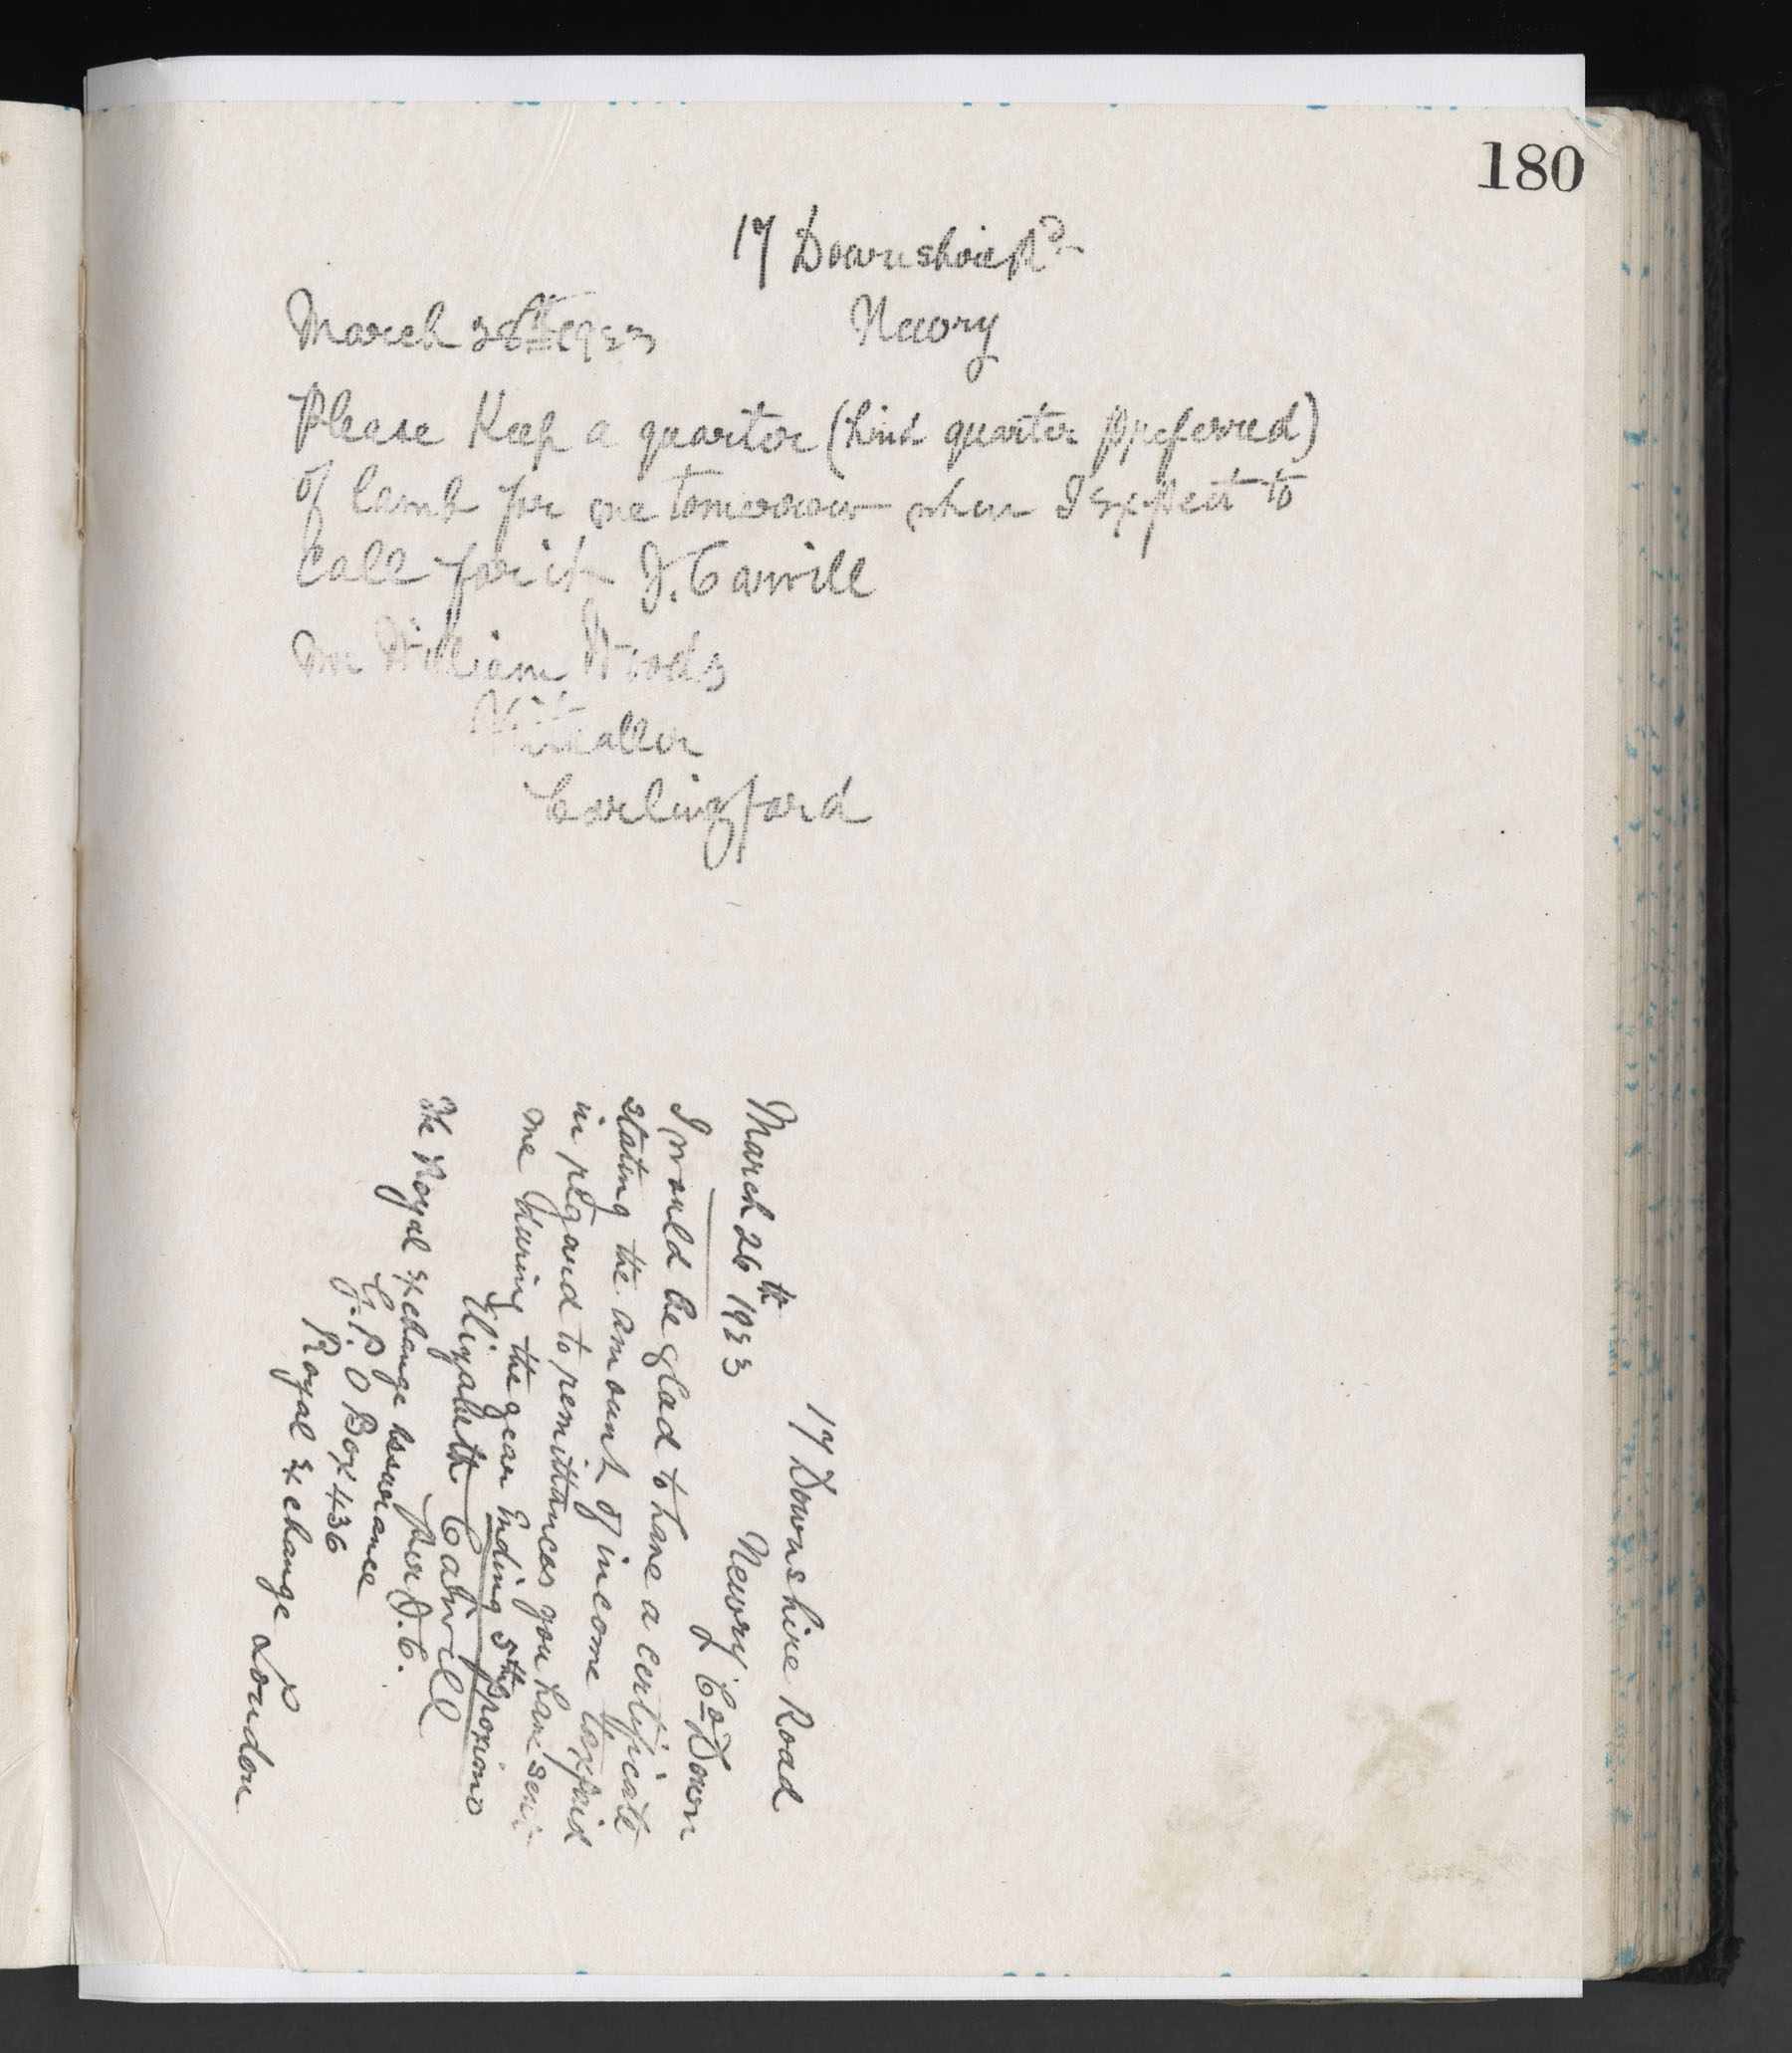 180
17 Downshire Rd
March 28th 1933 Newry
Please Keep a quarter (hind quarter preferred)
of lamb for me tomorrow when I expect to
Call for it J. Carvill
Mr William Woods
Victualler
Carlingford
17 Downshire Road
March 26th 1933 Newry Co Down
I would be glad to have a certificate
stating the amount of income tax paid
in regard to remittances you have sent
me during the year Ending 5th proximo
Elizabeth Carvill
per J. C.
The Royal Exchange Assurance
G. P. O Box 436
Royal Exchange London